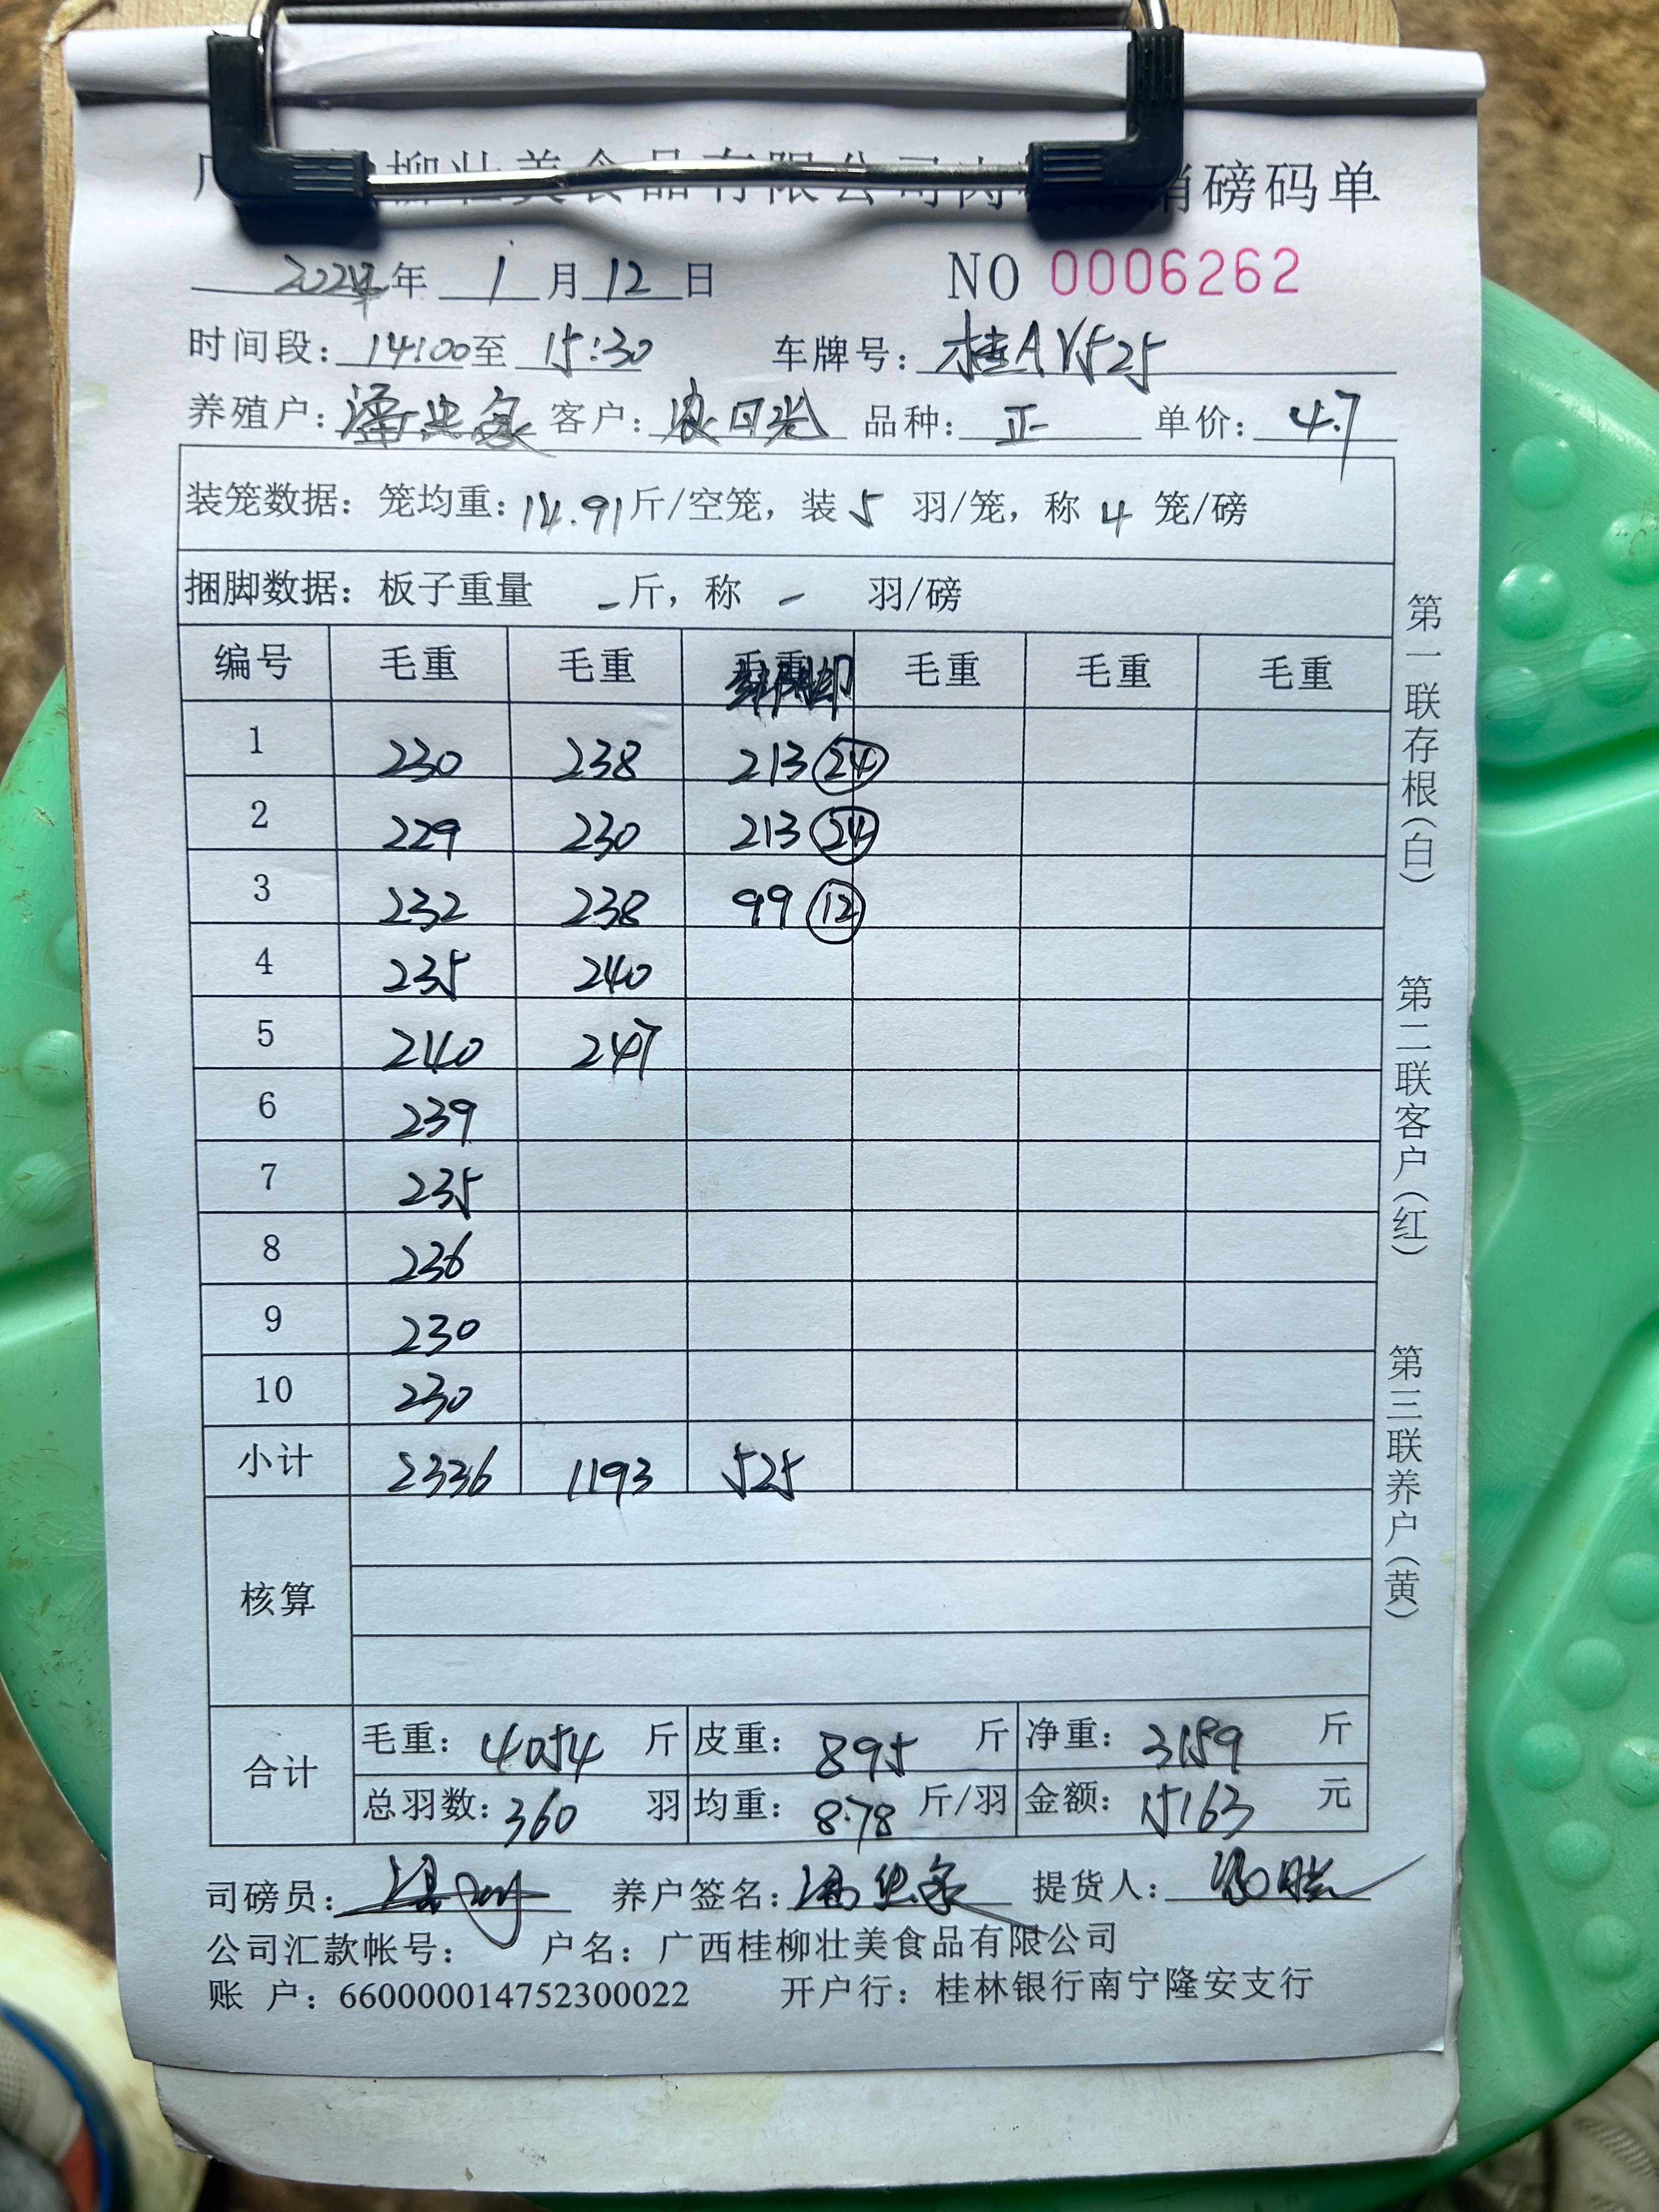 柳壮美食品有限公司肉 销磅码单
2024年 1 月 12 日 NO 0006262
时间段: 14:00 至 15:30 车牌号: 桂AY525
养殖户: 潘 客户: 日光 品种: 正 单价: 4.7
装笼数据: 笼均重: 14.91 斤/空笼, 装 5 羽/笼, 称 4 笼/磅
捆脚数据: 板子重量 - 斤, 称 - 羽/磅
编号 毛重 毛重 毛重 毛重 毛重
1 230 238 213 24
2 229 230 213 24
3 232 238 99 12
4 235 240
5 240 247
6 239
7 235
8 236
9 230
10 230
小计 2336 1193 525
核算
合计 毛重: 4054 斤 皮重: 895 斤 净重: 3159 斤
总羽数: 360 羽 均重: 8.78 斤/羽 金额: 15163 元
司磅员: 养户签名: 提货人:
公司汇款帐号: 户名: 广西桂柳壮美食品有限公司
账 户: 660000014752300022 开户行: 桂林银行南宁隆安支行
第一联存根(白)
第二联客户(红)
第三联养户(黄)